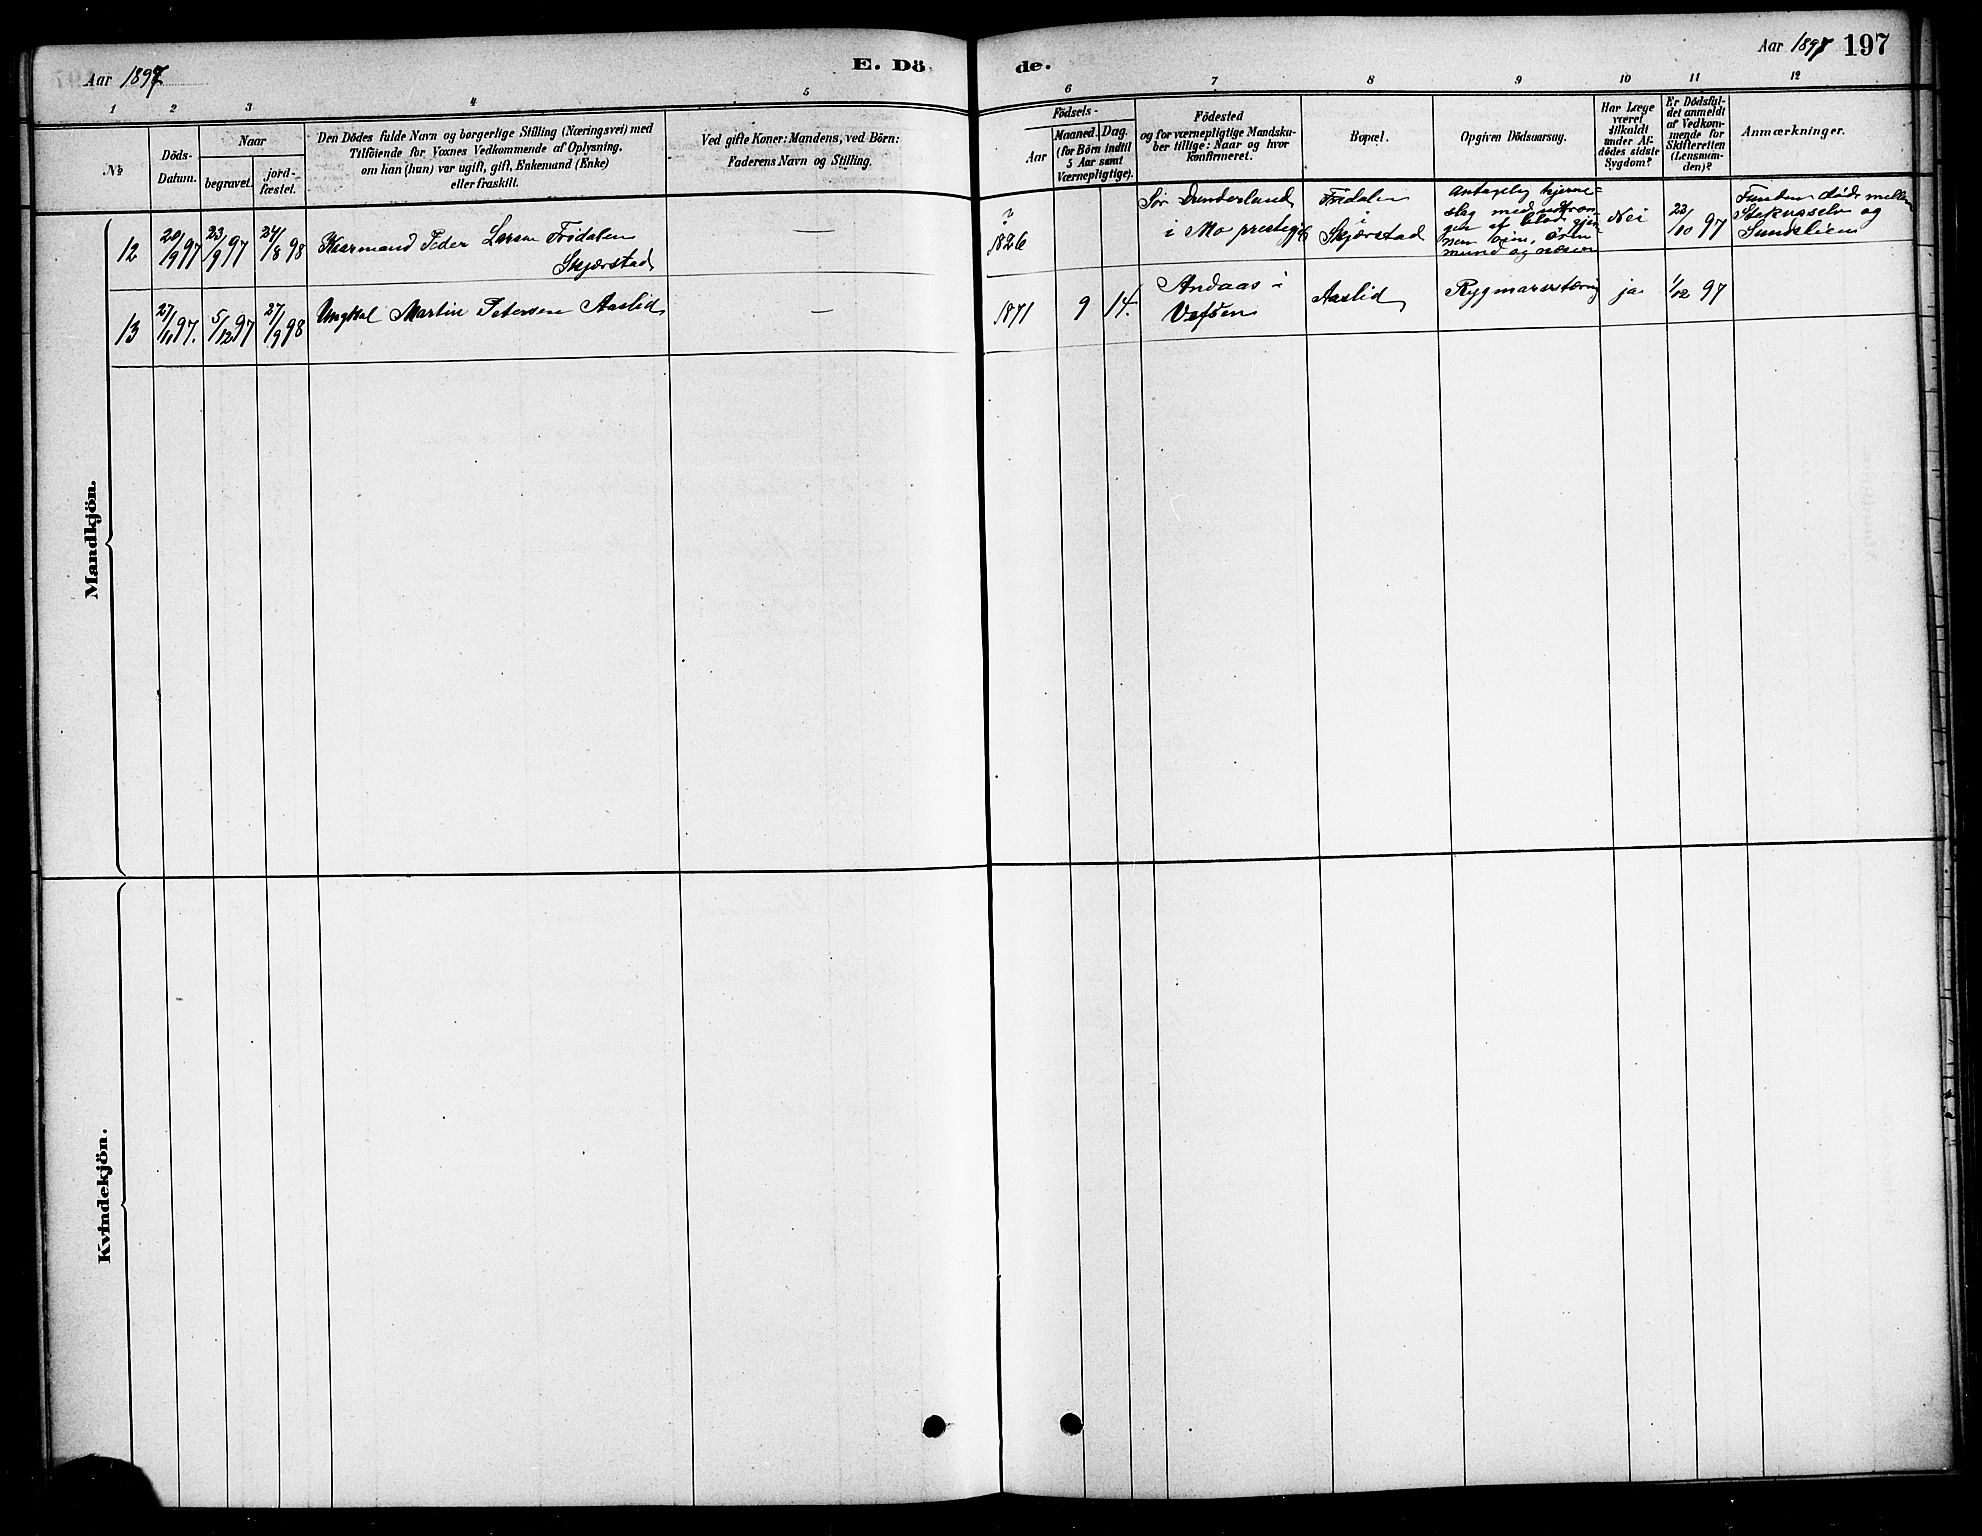 Aar 1897
E. Dö
de.
Aar 1897
197
1 2 3 4 5
6 7 8 9 10 11 12
No
Döds-
Datum.
Naar
begravet.
jord-
fæstet.
Den Dödes fulde Navn og borgerlige Stilling (Næringsvei) med
Tilföiende for Voxnes Vedkommende af Oplysning,
om han (hun) var ugift, gift, Enkemand (Enke)
eller fraskilt.
Ved gifte Koner: Mandens, ved Börn:
Faderens Navn og Stilling.
Födsels-
Aar
Maaned. Dag.
(for Börn indtil
5 Aar samt
Værnepligtige).
Födested
og for værnepligtige Mandska-
ber tillige: Naar og hvor
konfirmeret.
Bopæl.
Opgiven Dödsaarsag.
Har Læge
været
tilkaldt
under Af-
dödes sidste
Sygdom?
Er Dödsfal-
det anmeldt
af Vedkom-
mende for
Skifteretten
(Lensman-
den)?
Anmærkninger.
Mandkjön.
12
20/9 97
23/9 97
24/8 98
Kaarmand Peder Larsen Frødalen
Skjærstad
—
?
1826
Sør Dunderland
i Mo prestegj
Frødalen
i
Skjærstad
antagelig hjerne=
slag med udtræn
gen af blod gjen
nem øine, ören
mund og næsen
Nei
23/10 97
Funden død mellem
og
Sundslien
13
27/11 97.
5/12 97
27/9 98
Ungkal Martin Petersen Aaslid
—
1871
9
14.
Andaas i
Vefsen
Aaslid
Rygmarvstæring
ja
1/12 97
Kvindekjön.